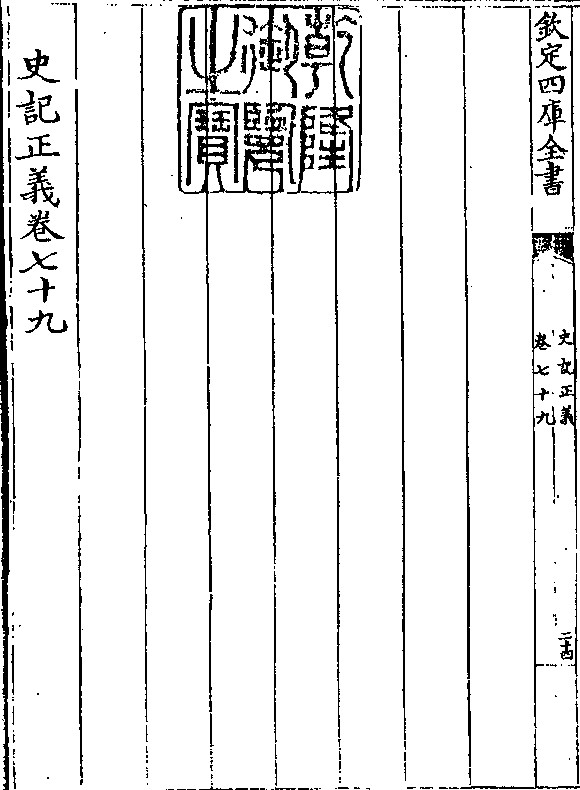 欽定四庫全書
史記正義
卷七十九
二十四
乾隆御覽之寶
史記正義卷七十九